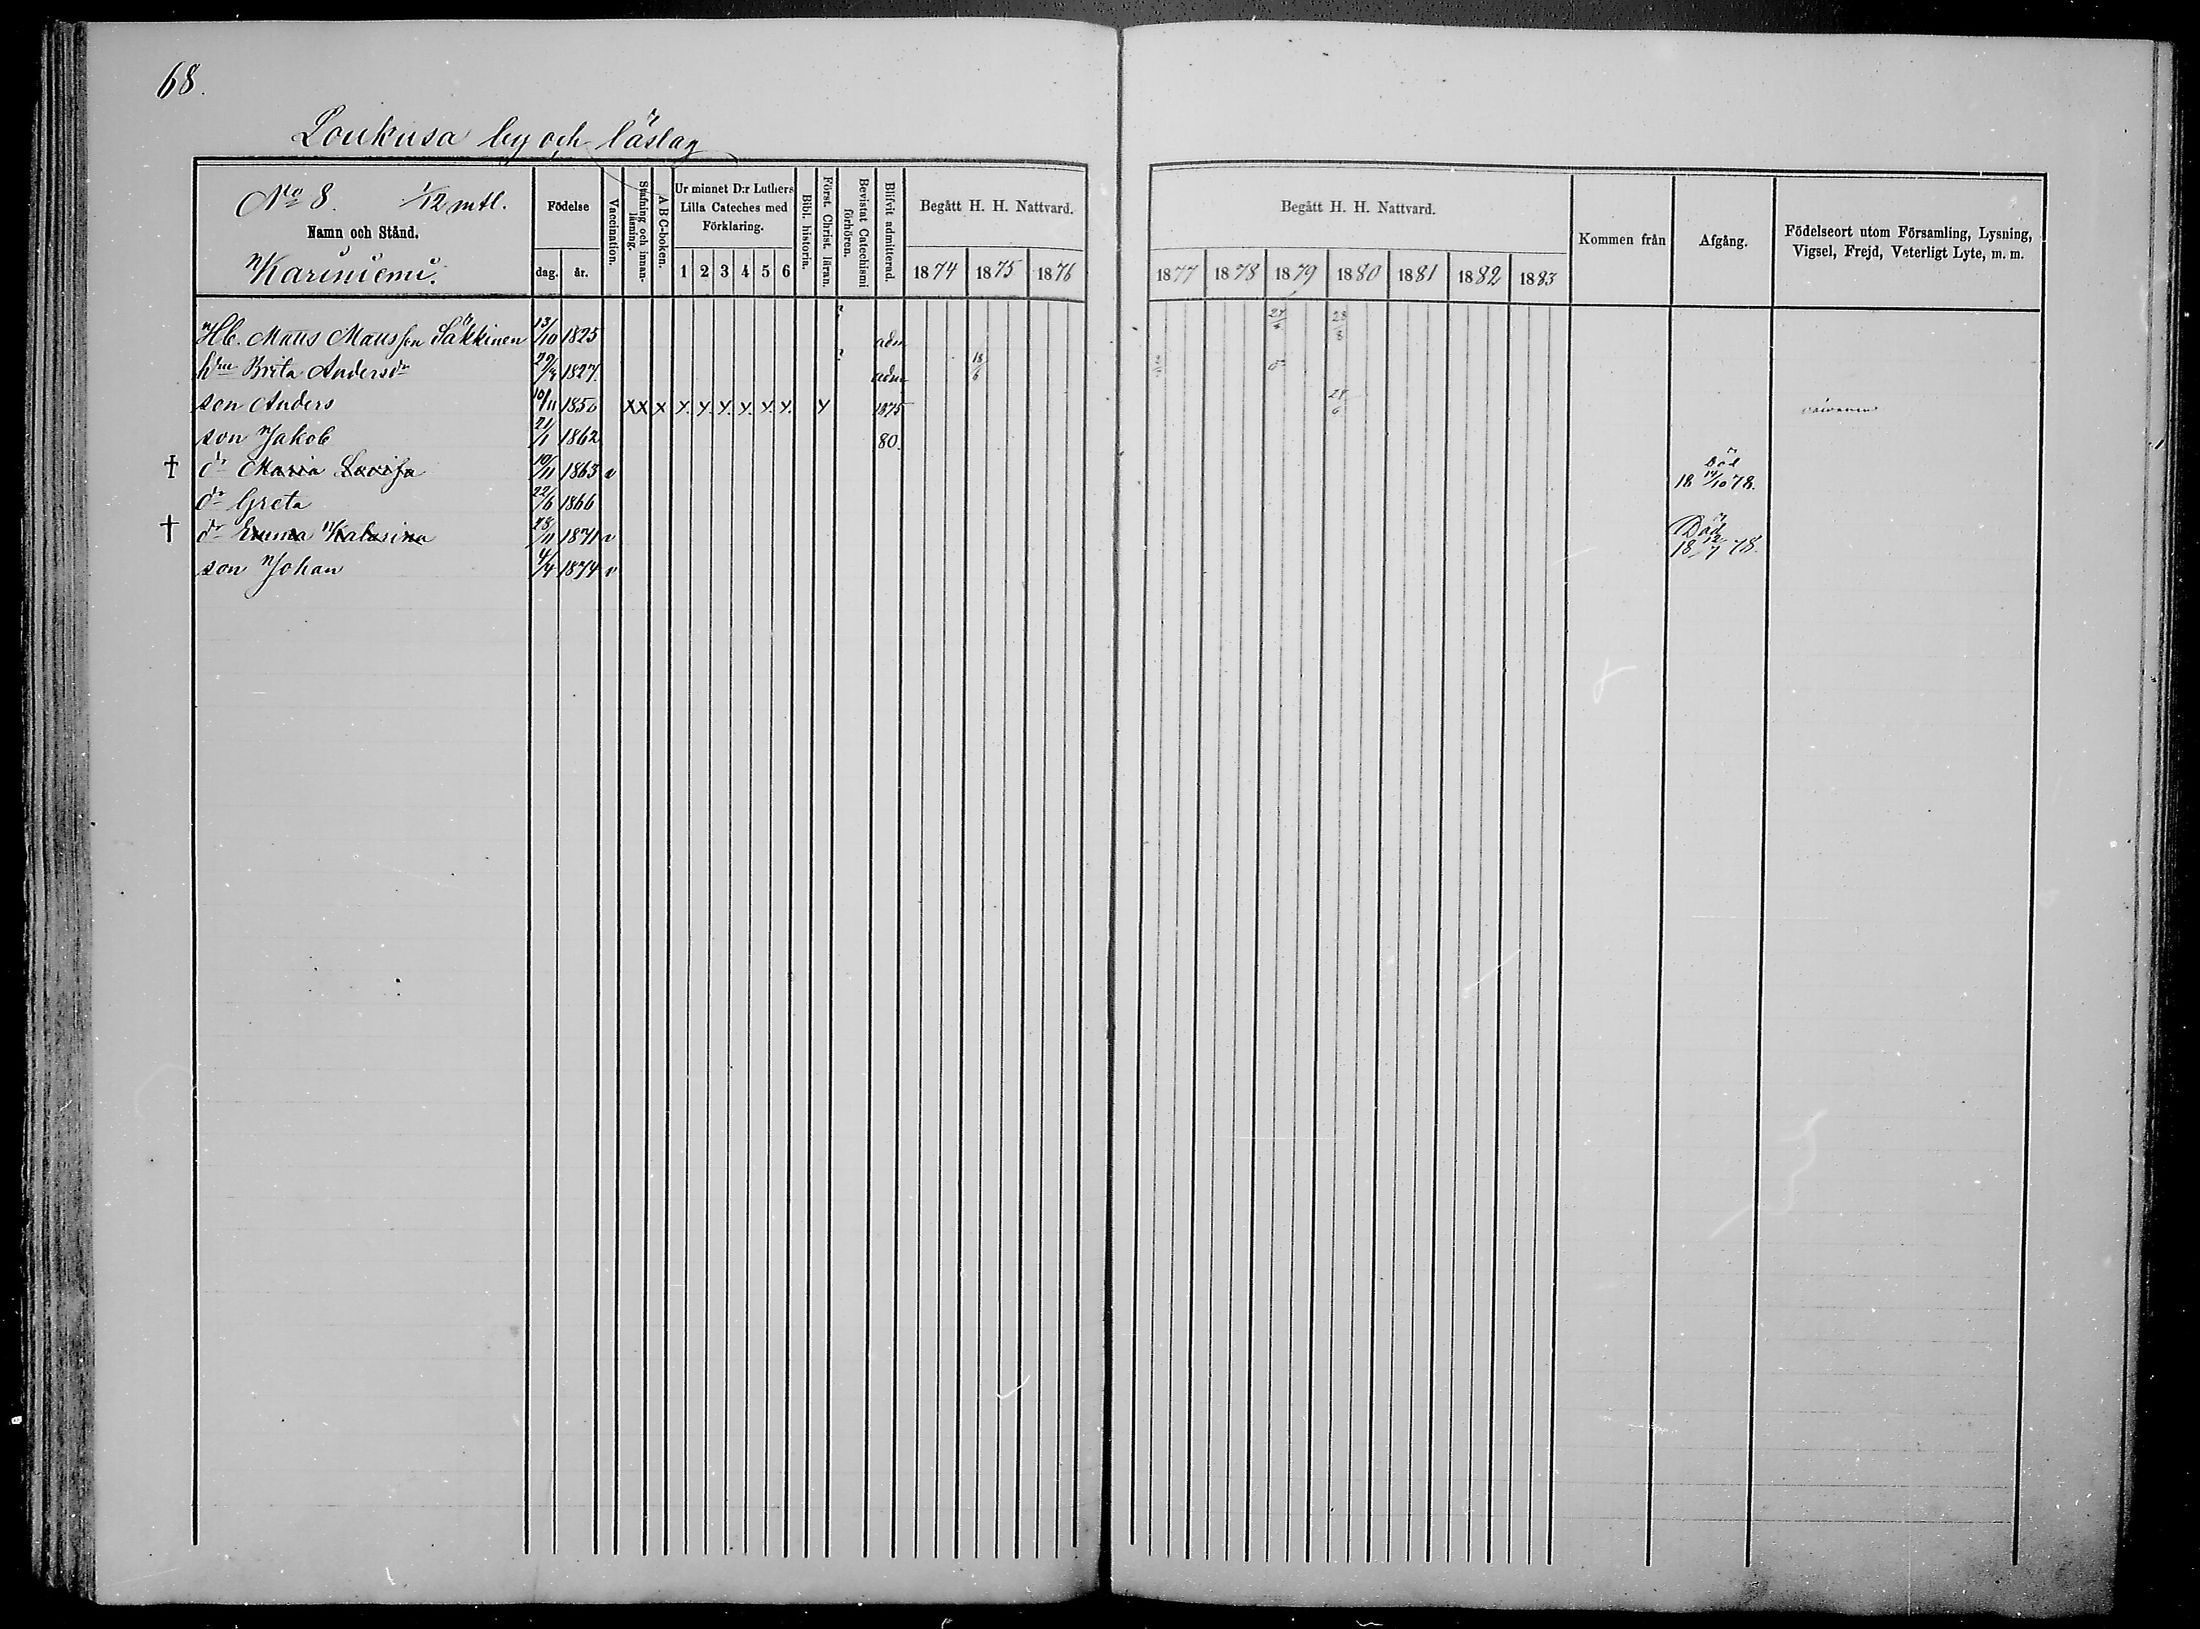 68.
Loukusa by och läslag
No 8. 1/12 mtl.
Namn och Stånd.
Kariniemi.
Födelse
dag. år.
Vaccination.
Stafning och innanläsning.
A B C-boken.
Ur minnet D:r Luthers Lilla Cateches med Förklaring.
1 2 3 4 5 6
Bibl. historia.
Först. Christ. läran.
Bevistat Catechismi förhören.
Blifvit admitterad.
Begått H. H. Nattvard.
1874 1875 1876
Begått H. H. Nattvard.
1877 1878 1879 1880 1881 1882 1883
Kommen från
Afgång.
Födelseort utom Församling, Lysning, Vigsel, Frejd, Veterligt Lyte, m. m.
Hb. Matts Mattsson Säkkinen 13/10 1825 adm 28/8
hu Brita Andersdr 29/4 1827 adm 18/6
son Anders 10/11 1856 X X X x x x x x x x 1875
son Jakob 21/1 1862 80.
† dr Maria Lovisa 10/11 1863 v Död 18 14/10 78.
dr Greta 22/6 1866
† dr Emma Katarina 28/11 1871 v Död 18 12/7 78.
son Johan 4/4 1874 v